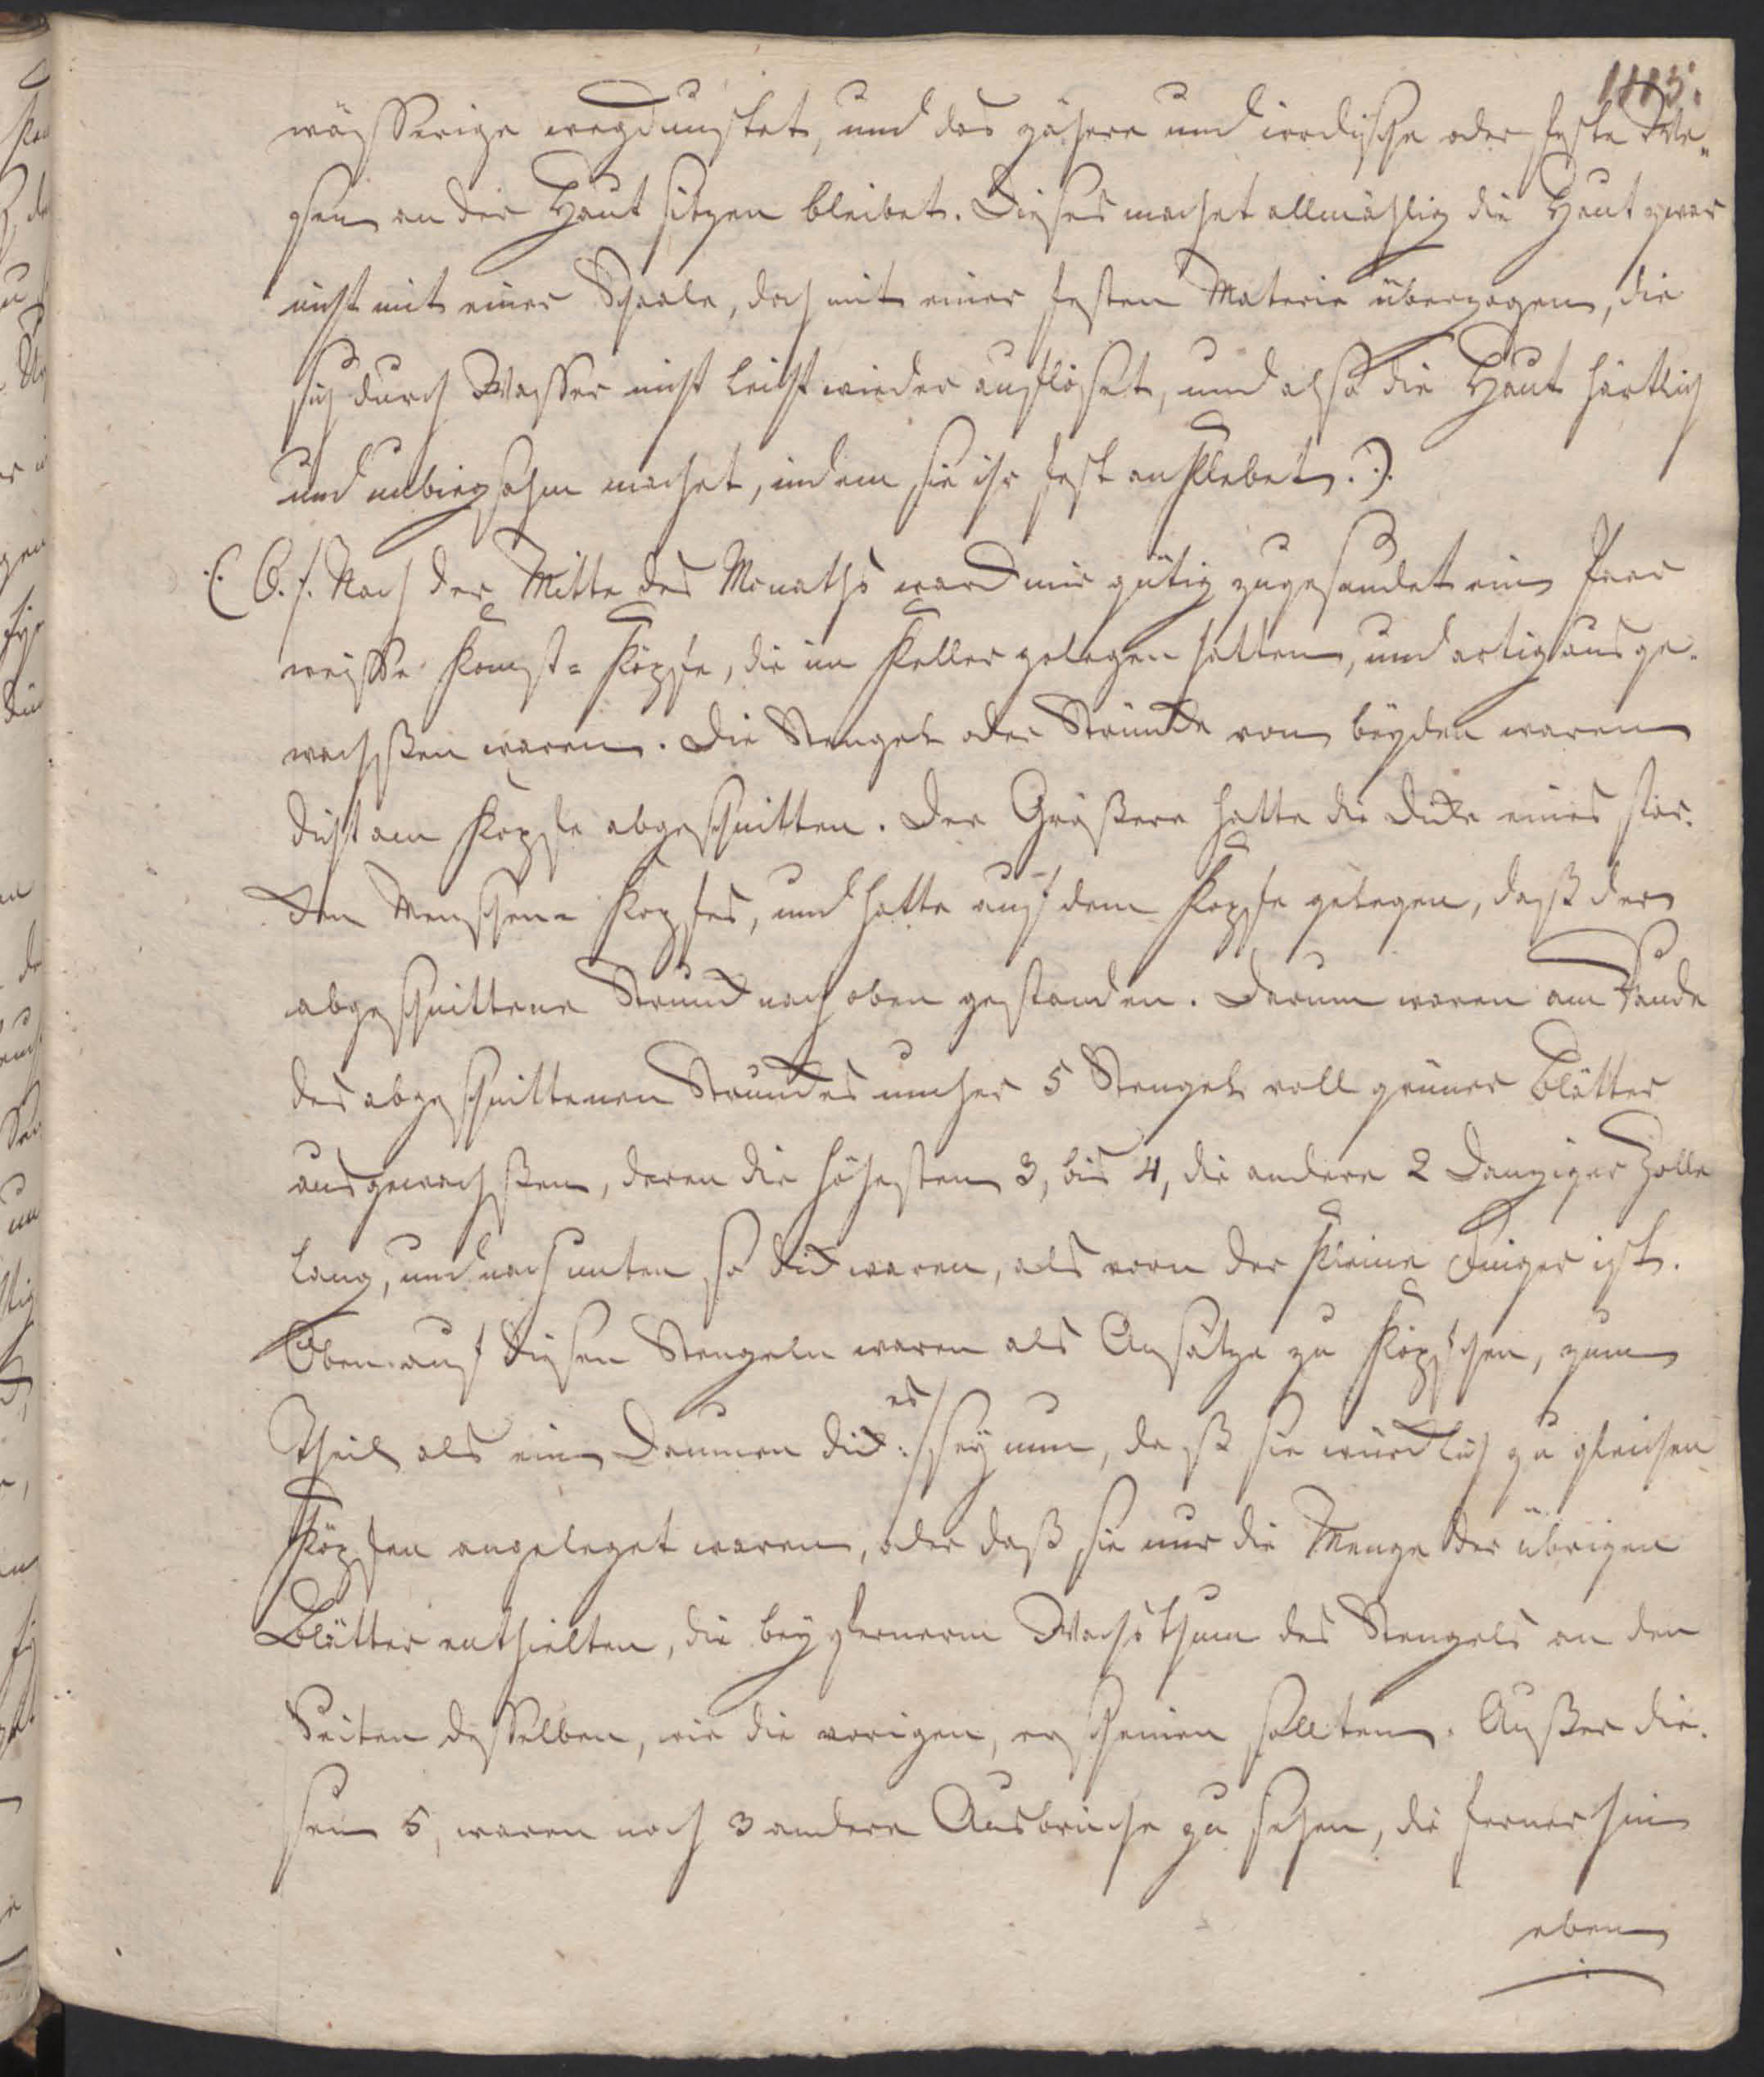 1113.
wäßerige wegdunstet, und das zähere und irrdische oder feste We„
sen an der Haut sitzen bleibet. Dieses machet allmählig die Haut zwar
nicht mit einer Schaale, doch mit einer festen Materie überzogen, die
sich durch Wasser nicht leicht wieder auflöset, und also die Haut härtlich
und unbiegsahm machet, indem sie ihr fest anklebet.:).
(: 6.). Nach der Mitte des Monaths ward mir gütig zugesandet ein Paar
weisse Komst- Köpfe, die im Keller gelegen hatten, und artig ausge-
wachßen waren. Die Stengel oder Strünke von beyden waren
dicht am Kopfe abgeschnitten. Der Größere hatte die Dicke eines star-
ken Menschen- Kopfes, und hatte auf dem Kopfe gelegen, daß der
abgeschnittene Strunk nach oben gestanden. Darum waren am Rande
des abgeschnittenen Strunkes umher 5 Stengel voll grüner Blätter
ausgewachßen, deren die höhesten 3, bis 4, die andere 2 Danziger Zolle
lang, und nach unten so dick waren, als vorn der kleine Finger ist.
Oben auf diesen Stengeln waren als Ansätze zu Köpfchen, zum
Theil als ein Daumen dick: es sey nun, daß sie würcklich zu gleichen
Köpfen angeleget waren, oder daß sie nur die Menge der übrigen
Blätter enthielten, die bey fernerm Wachsthum des Stengels an den
Seiten desselben, wie die vorigen, erscheinen sollten. Außer die-
sen 5, waren noch 3 andere Ausbrüche zu sehen, die fernerhin
eben